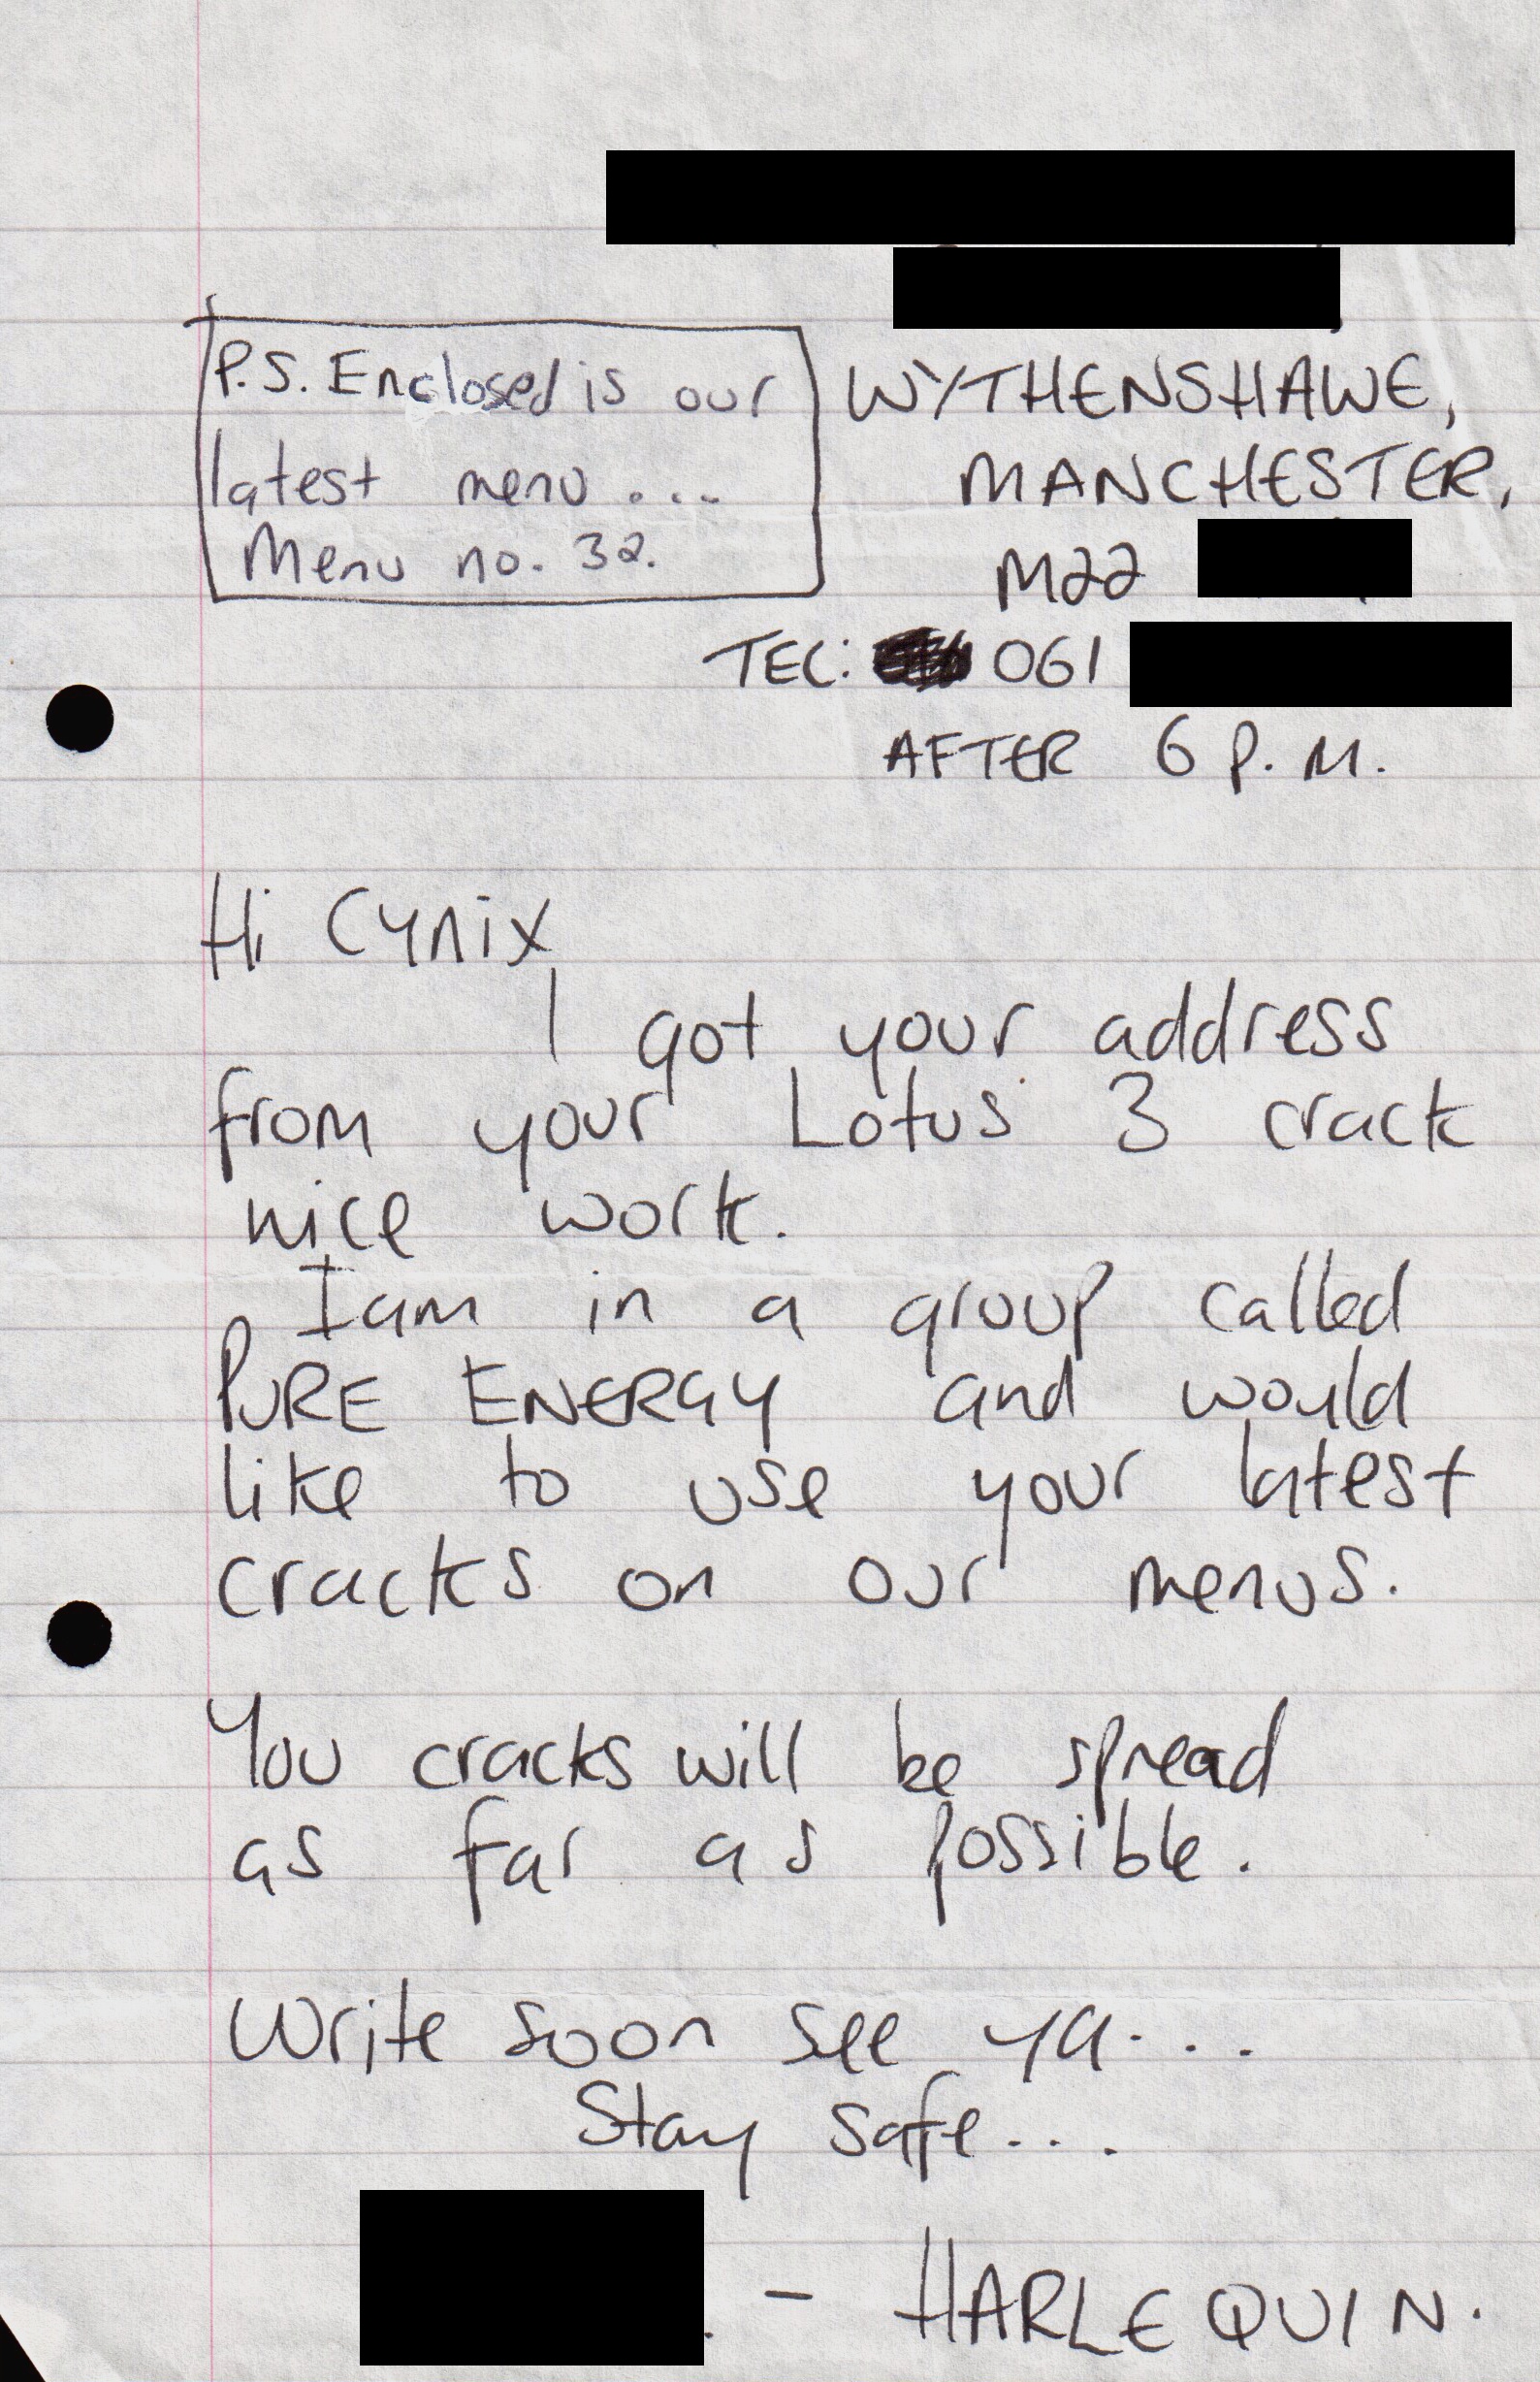 P.S. Enclosed is our
latest menu ...
Menu no. 32.
WYTHENSHAWE,
MANCHESTER,
M22
TEL: 061
AFTER 6 P.M.
Hi Cynix
I got your address
from your Lotus 3 crack
nice work.
I am in a group called
PURE ENERGY and would
like to use your latest
cracks on our menus.
You cracks will be spread
as far as possible.
Write soon see ya...
Stay safe...
- HARLEQUIN.